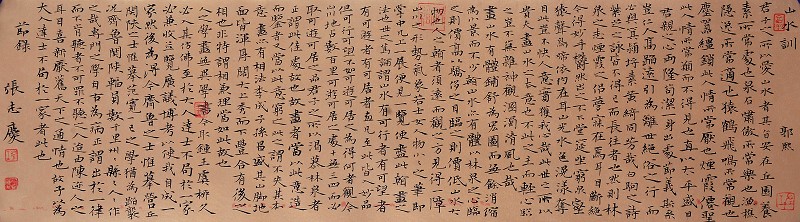 山水訓 郭熙
君子之所以愛山水者其旨安在丘園養
素所常處也泉石嘯傲所常樂也漁樵
隱逸所常適也猿鶴飛鳴所常觀也
塵囂韁鎖此人情所常厭也煙霞仙聖
此人情所常願而不得見也直以太平盛日
君親之心兩隆苟潔一身出處節義斯系
豈仁人高蹈遠引為離世絕俗之行而
必與箕潁埒素黃綺同芳哉白駒之詩
紫芝之詠皆不得已而長往者也然則林
泉之志煙霞之侶夢寐在焉耳目斷絕
今得妙手鬱然出之不下堂筵坐窮泉壑
猿聲鳥啼依約在耳山光水色滉漾奪
目此豈不快人意實獲我心哉此世之所以
貴夫畫山水之本意也不此之主而輕心臨
之豈不蕪雜神觀溷濁清風也哉
畫山水有體鋪舒為宏圖而無餘消縮
為小景而不少看山水亦有體以林泉之心臨
之則價高以驕侈之目臨之則價低山水大
物也人之看者須遠而觀之方見得一障
山川之形勢氣象若士女人物小小之筆即
掌中几上一展便見一覽便盡此看畫之
法也世之篤論謂山水有可行者有可望者
有可游者有可居者畫凡至此皆入妙品
但可行可望不如可居可游之為得何者觀今
山川地占數百里可游可居之處十無三四而必
取可居可游之品君子之所以渴慕林泉者
正謂此佳處故也故畫者當以此意造
而鑒者又當以此意窮之此之謂不失其本
意畫亦有相法李成子孫昌盛其山腳地
面皆渾厚闊大上秀而下豐合有後之
相也非特謂相兼理當如此故也
人之學畫無異學書今取鍾王虞柳久
必入其仿佛至于大人達士不局于一家
必兼收並覽廣議博考以使我自成一
家然後為得今齊魯之士惟摹營丘
關陝之士惟摹范寬一己之學猶為蹈襲
況齊魯關陝輻員數千里州州縣縣人人作
之哉專門之學自古為病正謂出於一律
而不肯聽者不可罪不聽之人迨由陳迹人之
耳目喜新厭舊天下之通情也故予以為
大人達士不局於一家者此也
節錄 張志慶